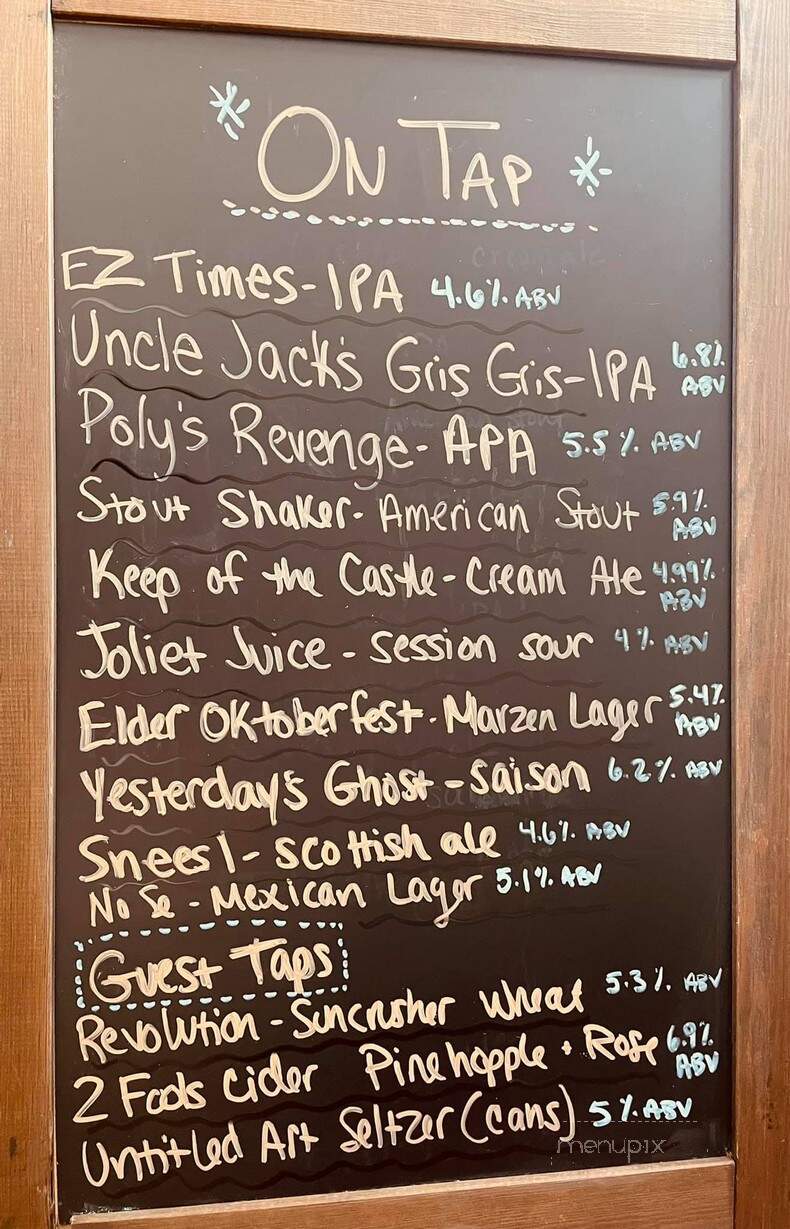 On Tap
EZ Times - IPA 4.6% ABV
Uncle Jack's Gris Gris - IPA 6.8% ABV
Poly's Revenge - APA 5.5% ABV
Stout Shaker - American Stout 5.9% ABV
Keep of the Castle - Cream Ale 4.99% ABV
Joliet Juice - session sour 4% ABV
Elder Oktoberfest - Marzen Lager 5.4% ABV
Yesterday's Ghost - saison 6.2% ABV
Snees 1 - scottish ale 4.6% ABV
No Se - Mexican Lager 5.1% ABV
Guest Taps
Revolution - Suncrusher wheat 5.3% ABV
2 Fools Cider Pinehopple + Rose 6.9% ABV
Untitled Art Seltzer (cans) 5% ABV
menupix